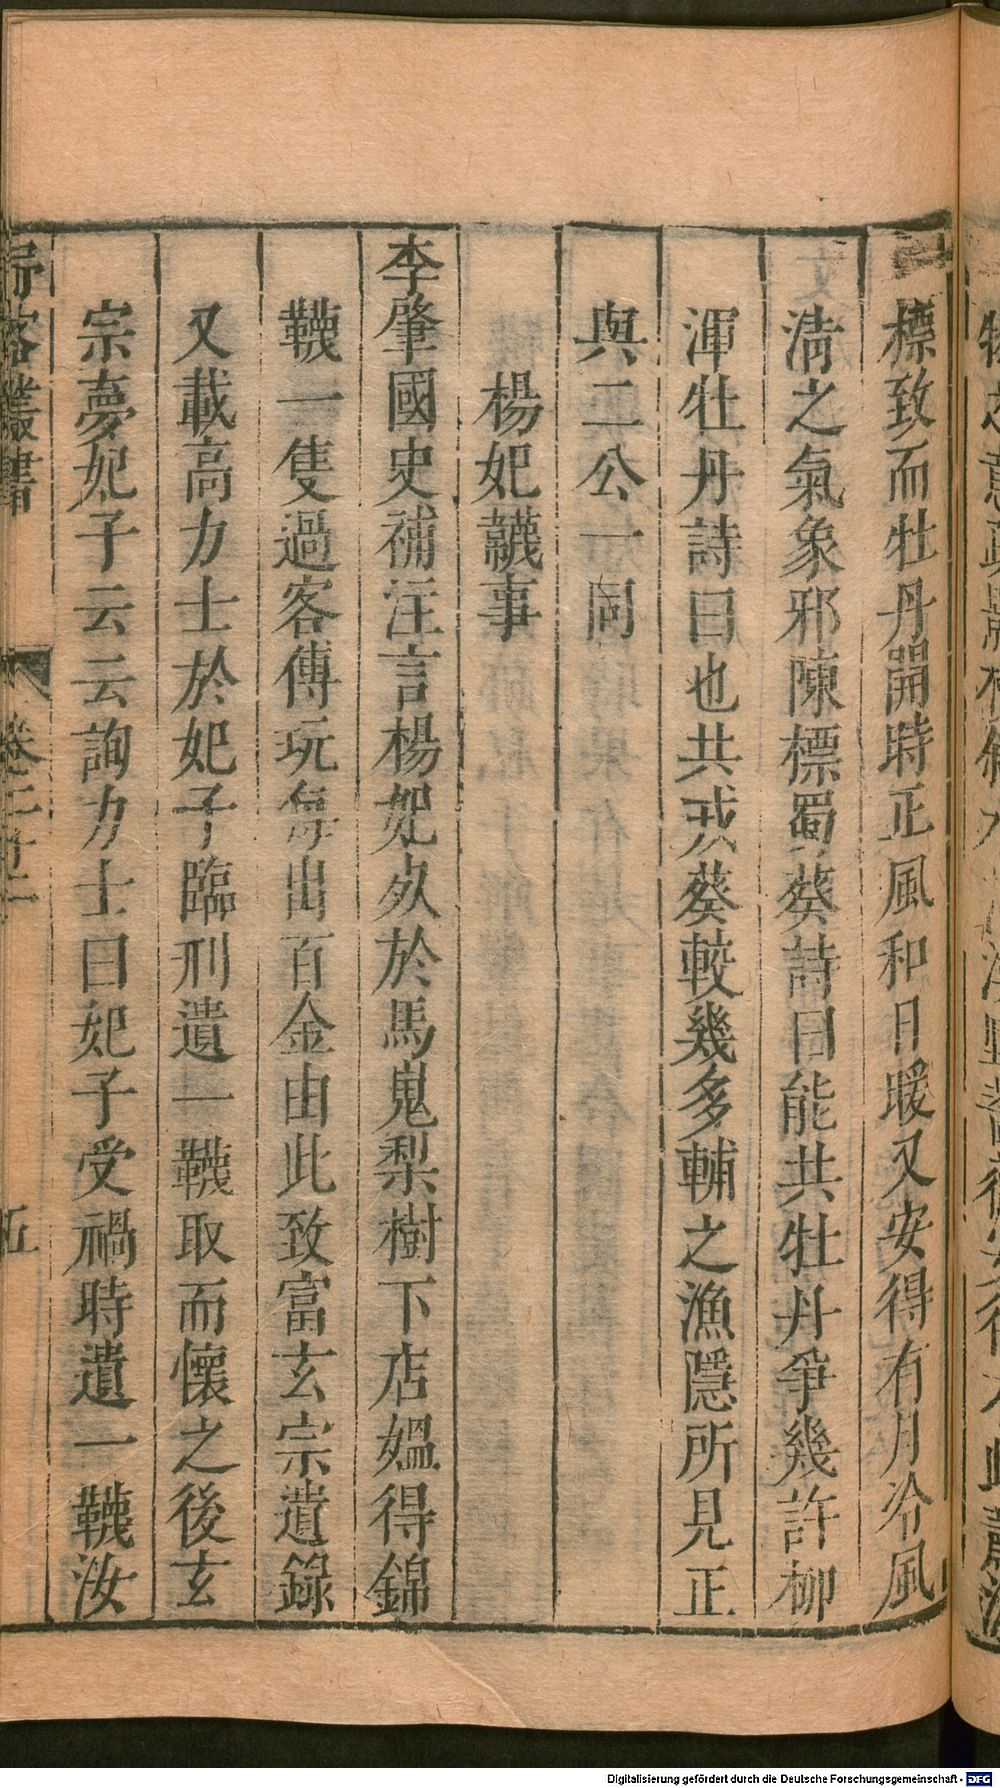 標致而牡丹開時正風和日暖又安得有月冷風
淸之氣象邪陳標蜀葵詩曰能共牡丹爭幾許柳
渾牡丹詩曰也共戎葵較幾多輔之漁隱所見正
與二公一同
楊妃韈事
李肇國史補注言楊妃死於馬嵬梨樹下店媼得錦
韈一隻過客傳玩每出百金由此致富玄宗遺錄
又載高力士於妃子臨刑遺一韈取而懷之後玄
宗夢妃子云云詢力士曰妃子受禍時遺一韈汝
叢書
卷二十
五
Digitalisierung gefördert durch die Deutsche Forschungsgemeinschaft - DFG